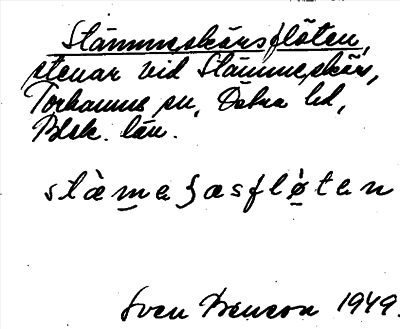 Stämmeskärsflöten,
stenar vid Stämmeskär,
Torhamns sn, Östra hd,
Blek. län.
stàmeʂasflø̀tən
Sven Benson 1949.